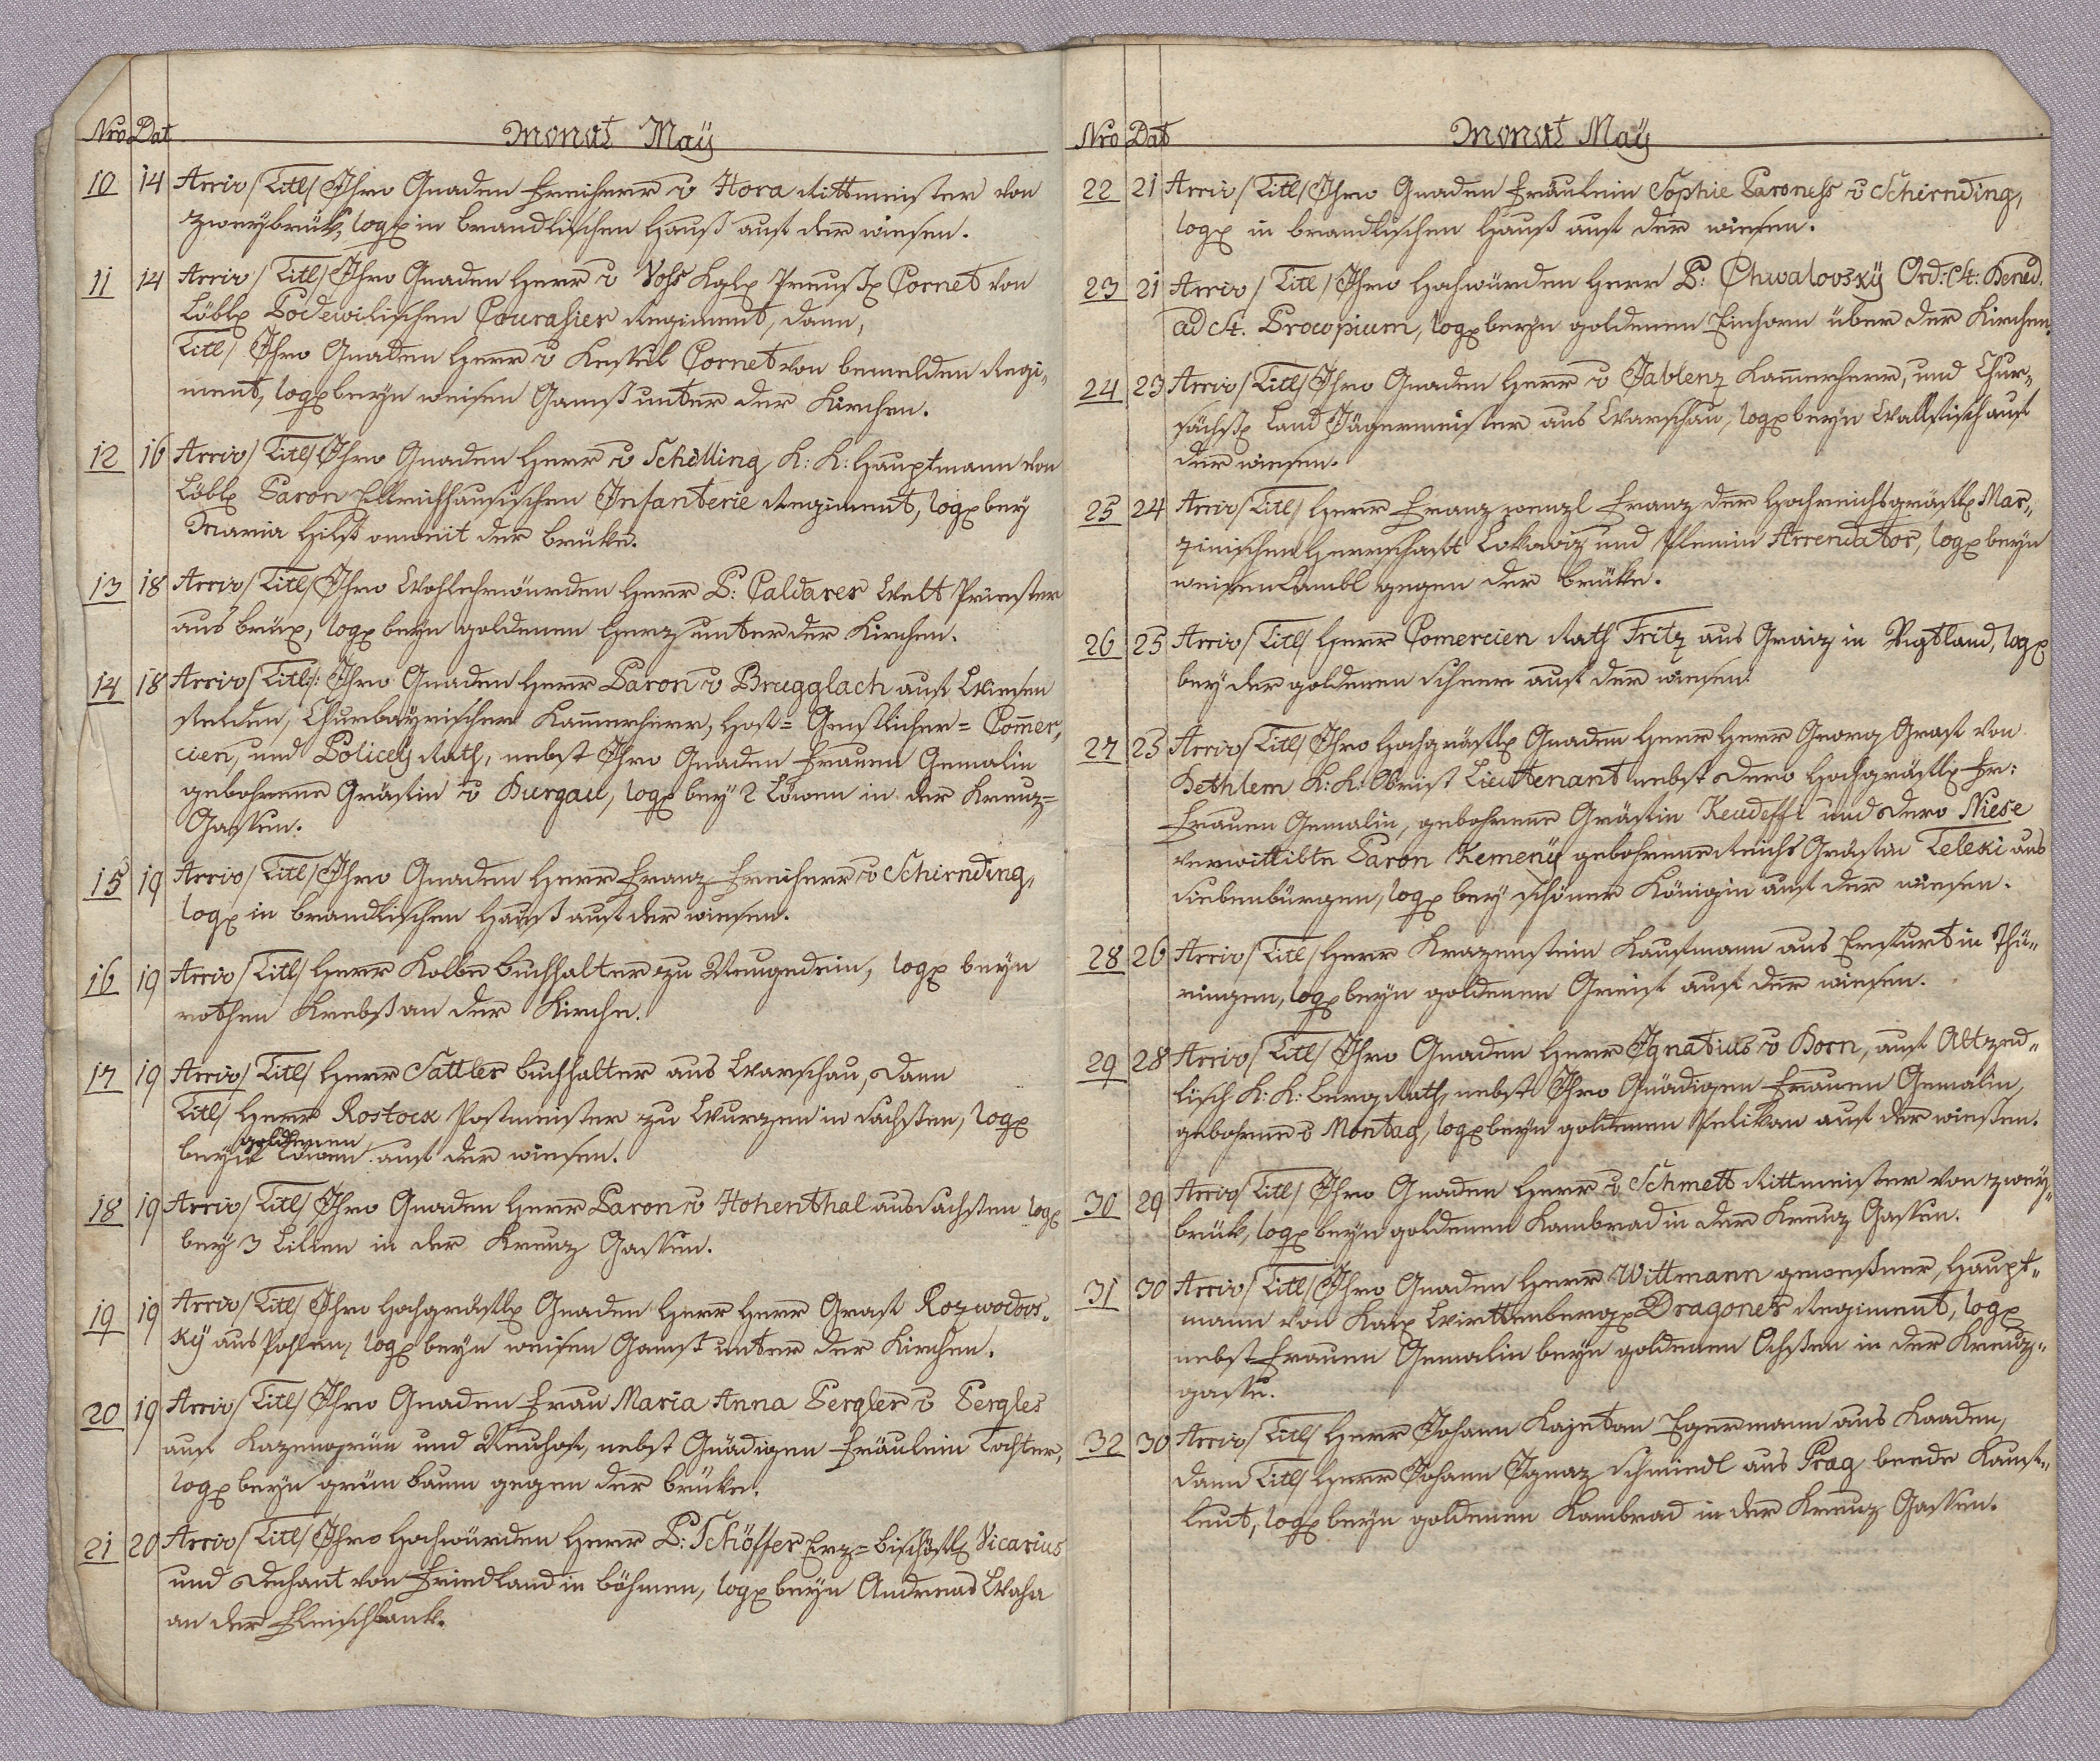 Nro Dat Monat Maÿ
10 14 Arriv /Titl/ Ihro Gnaden Freiherr v Hora Rittmeister von
Zweybrük, logx in brandlischen Hauß auf der wiesen.
11 14 Arriv /Titl/ Ihro Gnaden Herr v Vohs Kglx Preusx Cornet von
Löblx Podewilischen Courasier Regiment, dann,
Titl/ Ihro Gnaden Herr v Kessel Cornet von bemelden Regi„
ment, logx beyn weisen Ganß unter der Kirchen.
12 16 Arriv /Titl/ Ihro Gnaden Herr v Schilling K: K: Hauptmann von
Löblx Baron Ellrichhausischen Infanterie Regiment, logx bey
Maria Hilf onweit der brüke.
13 18 Arriv /Titl/ Ihro Wohlehrwürden Herr P: Caldarer Welt Priester
aus brüx, logx beyn goldenen Herz unter der Kirchen.
14 18 Arriv /Titl/: Ihro Gnaden Herr Baron v Brugglach auf Wiesen
, Churbaÿrischer Kam̄erherr, Hof= Geistlicher= Com̄er„
cien, und Policeÿ Rath, nebst Ihro Gnaden Frauen Gemalin
gebohrene Gräffin v Burgau, logx beÿ 2 Löwen in der Kreuz=
Gassen.
15 19 Arriv /Titl/ Ihro Gnaden Herr Franz Freiherr v Schirnding,
logx in brandlischen Hauß auf der wiesen.
16 19 Arriv /Titl/ Herr Kolbe buchhalter zu Neugedein, logx beyn
rothen Krebß an der Kirche.
17 19 Arriv /Titl/ Herr Sattler buchhalter aus Warschau, dann
Titl/ Herr Rostock Postmeister zu Wurzen in Sachsen, logx
goldenen
beyn Löwen auf der wiesen.
18 19 Arriv /Titl/ Ihro Gnaden Herr Baron v Hohenthal aus Sachsen logx
bey 3 Lilien in der Kreuz Gassen.
19 19 Arriv /Titl/ Ihro Hochgräflx Gnaden Herr Herr Graf Rozwodovs„
kÿ aus Pohlen, logx beyn weisen Ganß unter der Kirchen.
20 19 Arriv /Titl/ Ihro Gnaden Frau Maria Anna Pergler v Pergles
auf Kazengrün und Neuhof, nebst Gnädigen Fräulein Tochter,
logx beyn grün baum gegen der brüke.
21 20 Arriv /Titl/ Ihro Hochwürden Herr P: Schöffer Erz=bischöflx Vicarius
und Dechant von Friedland in böhmen, logx beyn Andreas Waha
an der Fleischbank.
Nro Dat Monat Maÿ
22 21 Arriv /Titl/ Ihro Gnaden Fräulein Sophie Baroness v Schirnding,
logx in brandlischen Hauß auf der wiesen.
23 21 Arriv /Titl/ Ihro Hochwürden Herr P: Chwalovskÿ Ord: St: Bened.
ad St. Procopium, logx beyn goldenen Einhorn über der Kirchen.
24 23 Arriv /Titl/ Ihro Gnaden Herr v Jablenz Kam̄erherr, und Chur„
sächsx Land Jägermeister aus Warschau, logx beyn Wallfisch auf
der wiesen.
25 24 Arriv /Titl/ Herr Franz wenzl Franz der Hochreichsgräflx Mar„
zinischen Herrschaft Lukawiz und Plenin Arrendator, logx beyn
weisen Lambl gegen der brüke.
26 25 Arriv /Titl/ Herr Comercien Rath Fritz aus Graiz in Vigtland, logx
bey der goldenen auf der wiesen.
27 25 Arriv /Titl/ Ihro Hochgräflx Gnaden Herr Herr Georg Graf von
Bethlem K: K: Obrist Lieutenant nebst dero Hochgräflx Fr:
Frauen Gemalin, gebohrene Gräffin Keudeffi und dero Niese
verwittibte Baron Kemenÿ gebohrene Reichs Gräffin Teleki aus
Siebenbürgen, logx bey schöner Königin auf der wiesen.
28 26 Arriv /Titl/ Herr Krazenstein Kaufmann aus Erfurt in Thü„
ringen, logx beyn goldenen Greif auf der wiesen.
29 28 Arriv /Titl/ Ihro Gnaden Herr Ignatius v Born, auf Altzed„
lisch K: K: berg Rath, nebst Ihro Gnädigen Frauen Gemalin,
gebohrene v Montag, logx beyn goldenen Pelikan auf der wiesen.
30 29 Arriv /Titl/ Ihro Gnaden Herr v Schmett Rittmeister von zweÿ„
brük, logx beyn goldenen Kambrad in der Kreuz Gassen.
31 30 Arriv /Titl/ Ihro Gnaden Herr Wittmann gewesener, Haupt„
mann von Kaix Württenbergx Dragoner Regiment, logx
nebst Frauen Gemalin beyn goldenen Ochsen in der Kreuz„
gasse.
32 30 Arriv /Titl/ Herr Johann Kajetan Egermann aus Kaaden,
dann Titl/ Herr Johann Ignaz Schmiedl aus Prag beede Kauf„
leut, logx beyn goldenen Kambrad in der Kreuz Gassen.